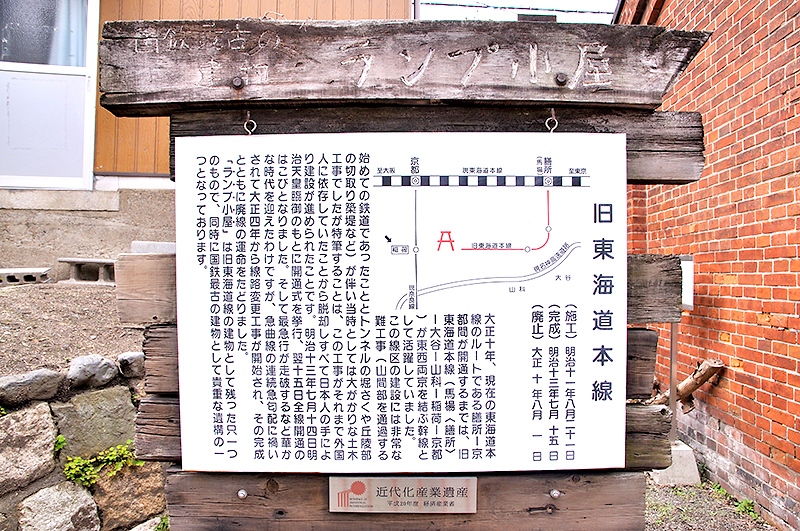 国鉄最古の
建物
ランプ小屋
旧東海道本線
（施工）明治十一年八月二十一日
（完成）明治十三年七月十五日
（廃止）大正十年八月一日
至大阪
京都
現東海道本線
膳所
（馬場）
至東京
稲荷
旧東海道本線
現名神高速道路
大谷
山科
現奈良線
大正十年、現在の東海道本
線のルートである膳所ー京
都間が開通するまでは、旧
東海道本線（馬場〈膳所〉
ー大谷ー山科ー稲荷ー京都
）が東西両京を結ぶ幹線と
して活躍していました。
この線区の建設には非常な
難工事（山間部を通過する
始めての鉄道であったこととトンネルの堀さくや丘陵部
の切取り築堤など）が伴い当時としては大がかりな土木
工事でしたが特筆することは、この工事がそれまで外国
人に依存していたことから脱却しすべて日本人の手によ
り建設が進められたことです。明治十三年七月十四日明
治天皇臨御のもとに開通式を挙行、翌十五日全線開通の
はこびとなりました。そして最急行が走破するなど華か
な時代を迎えたわけですが、急曲線の連続急勾配に禍い
されて大正四年から線路変更工事が開始され、その完成
とともに廃線の運命をたどりました。
「ランプ小屋」は旧東海道線の建物として残った只一つ
のもので、同時に国鉄最古の建物として貴重な遺構の一
つとなっております。
近代化産業遺産
平成20年度 経済産業省